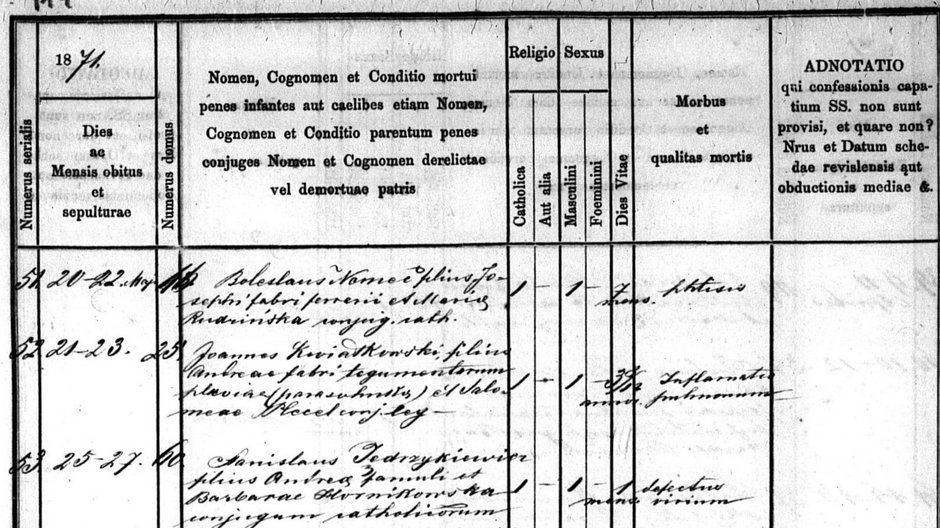 1871.
Numerus serialis
Dies
ac
Mensis obitus
et
sepulturae
Numerus domus
Nomen, Cognomen et Conditio mortui
penes infantes aut caelibes etiam Nomen,
Cognomen et Conditio parentum penes
conjuges Nomen et Cognomen derelictae
vel demortuae patris
Religio
Catholica
Aut alia
Sexus
Masculini
Foeminini
Dies Vitae
Morbus
et
qualitas mortis
ADNOTATIO
qui confessionis capa-
tium SS. non sunt
provisi, et quare non?
Nrus et Datum sche-
dae revislensis aut
obductionis mediae &.
51 20-22. Maj Boleslaus Nemec filius Jo-
sephi fabri ferrerii et Maria 1 - 1 - 7 phtisis
Rudzińska conjug. cath. mens.
52 21-23. 25 Joannes Kwiatkowski, filius
Andreae fabri tegumentorum
pluviae (parasolnika) et Salo- 1 - 1 - Inflamatio
meae conj. leg — annor. pulmonum
53 25-27. 60 Stanislaus Jedrzykiewicz
filius Andreae famuli et
Barbarae Hornikowska 1 - 1 - 1 defectus
conjugum catholicorum mens. virium